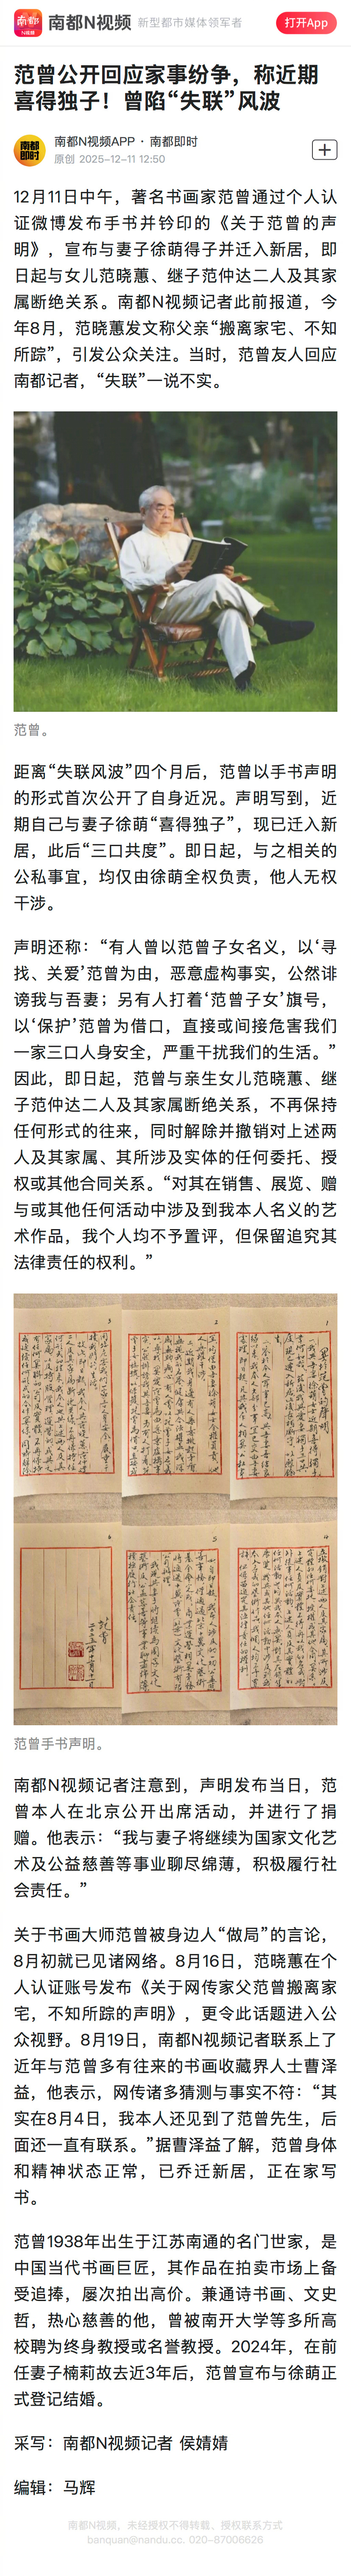 南都
N视频
南都N视频
新型都市媒体领军者
打开App
范曾公开回应家事纷争，称近期
喜得独子！曾陷“失联”风波
南都
即时
南都N视频APP · 南都即时
原创 2025-12-11 12:50
12月11日中午，著名书画家范曾通过个人认
证微博发布手书并钤印的《关于范曾的声
明》，宣布与妻子徐萌得子并迁入新居，即
日起与女儿范晓蕙、继子范仲达二人及其家
属断绝关系。南都N视频记者此前报道，今
年8月，范晓蕙发文称父亲“搬离家宅、不知
所踪”，引发公众关注。当时，范曾友人回应
南都记者，“失联”一说不实。
范曾。
距离“失联风波”四个月后，范曾以手书声明
的形式首次公开了自身近况。声明写到，近
期自己与妻子徐萌“喜得独子”，现已迁入新
居，此后“三口共度”。即日起，与之相关的
公私事宜，均仅由徐萌全权负责，他人无权
干涉。
声明还称：“有人曾以范曾子女名义，以‘寻
找、关爱’范曾为由，恶意虚构事实，公然诽
谤我与吾妻；另有人打着‘范曾子女’旗号，
以‘保护’范曾为借口，直接或间接危害我们
一家三口人身安全，严重干扰我们的生活。”
因此，即日起，范曾与亲生女儿范晓蕙、继
子范仲达二人及其家属断绝关系，不再保持
任何形式的往来，同时解除并撤销对上述两
人及其家属、其所涉及实体的任何委托、授
权或其他合同关系。“对其在销售、展览、赠
与或其他任何活动中涉及到我本人名义的艺
术作品，我个人均不予置评，但保留追究其
法律责任的权利。”
范曾手书声明。
南都N视频记者注意到，声明发布当日，范
曾本人在北京公开出席活动，并进行了捐
赠。他表示：“我与妻子将继续为国家文化艺
术及公益慈善等事业聊尽绵薄，积极履行社
会责任。”
关于书画大师范曾被身边人“做局”的言论，
8月初就已见诸网络。8月16日，范晓蕙在个
人认证账号发布《关于网传家父范曾搬离家
宅，不知所踪的声明》，更令此话题进入公
众视野。8月19日，南都N视频记者联系上了
近年与范曾多有往来的书画收藏界人士曹泽
益，他表示，网传诸多猜测与事实不符：“其
实在8月4日，我本人还见到了范曾先生，后
面还一直有联系。”据曹泽益了解，范曾身体
和精神状态正常，已乔迁新居，正在家写
书。
范曾1938年出生于江苏南通的名门世家，是
中国当代书画巨匠，其作品在拍卖市场上备
受追捧，屡次拍出高价。兼通诗书画、文史
哲，热心慈善的他，曾被南开大学等多所高
校聘为终身教授或名誉教授。2024年，在前
任妻子楠莉故去近3年后，范曾宣布与徐萌正
式登记结婚。
采写：南都N视频记者 侯婧婧
编辑：马辉
南都N视频，未经授权不得转载、授权联系方式
banquan@nandu.cc. 020-87006626